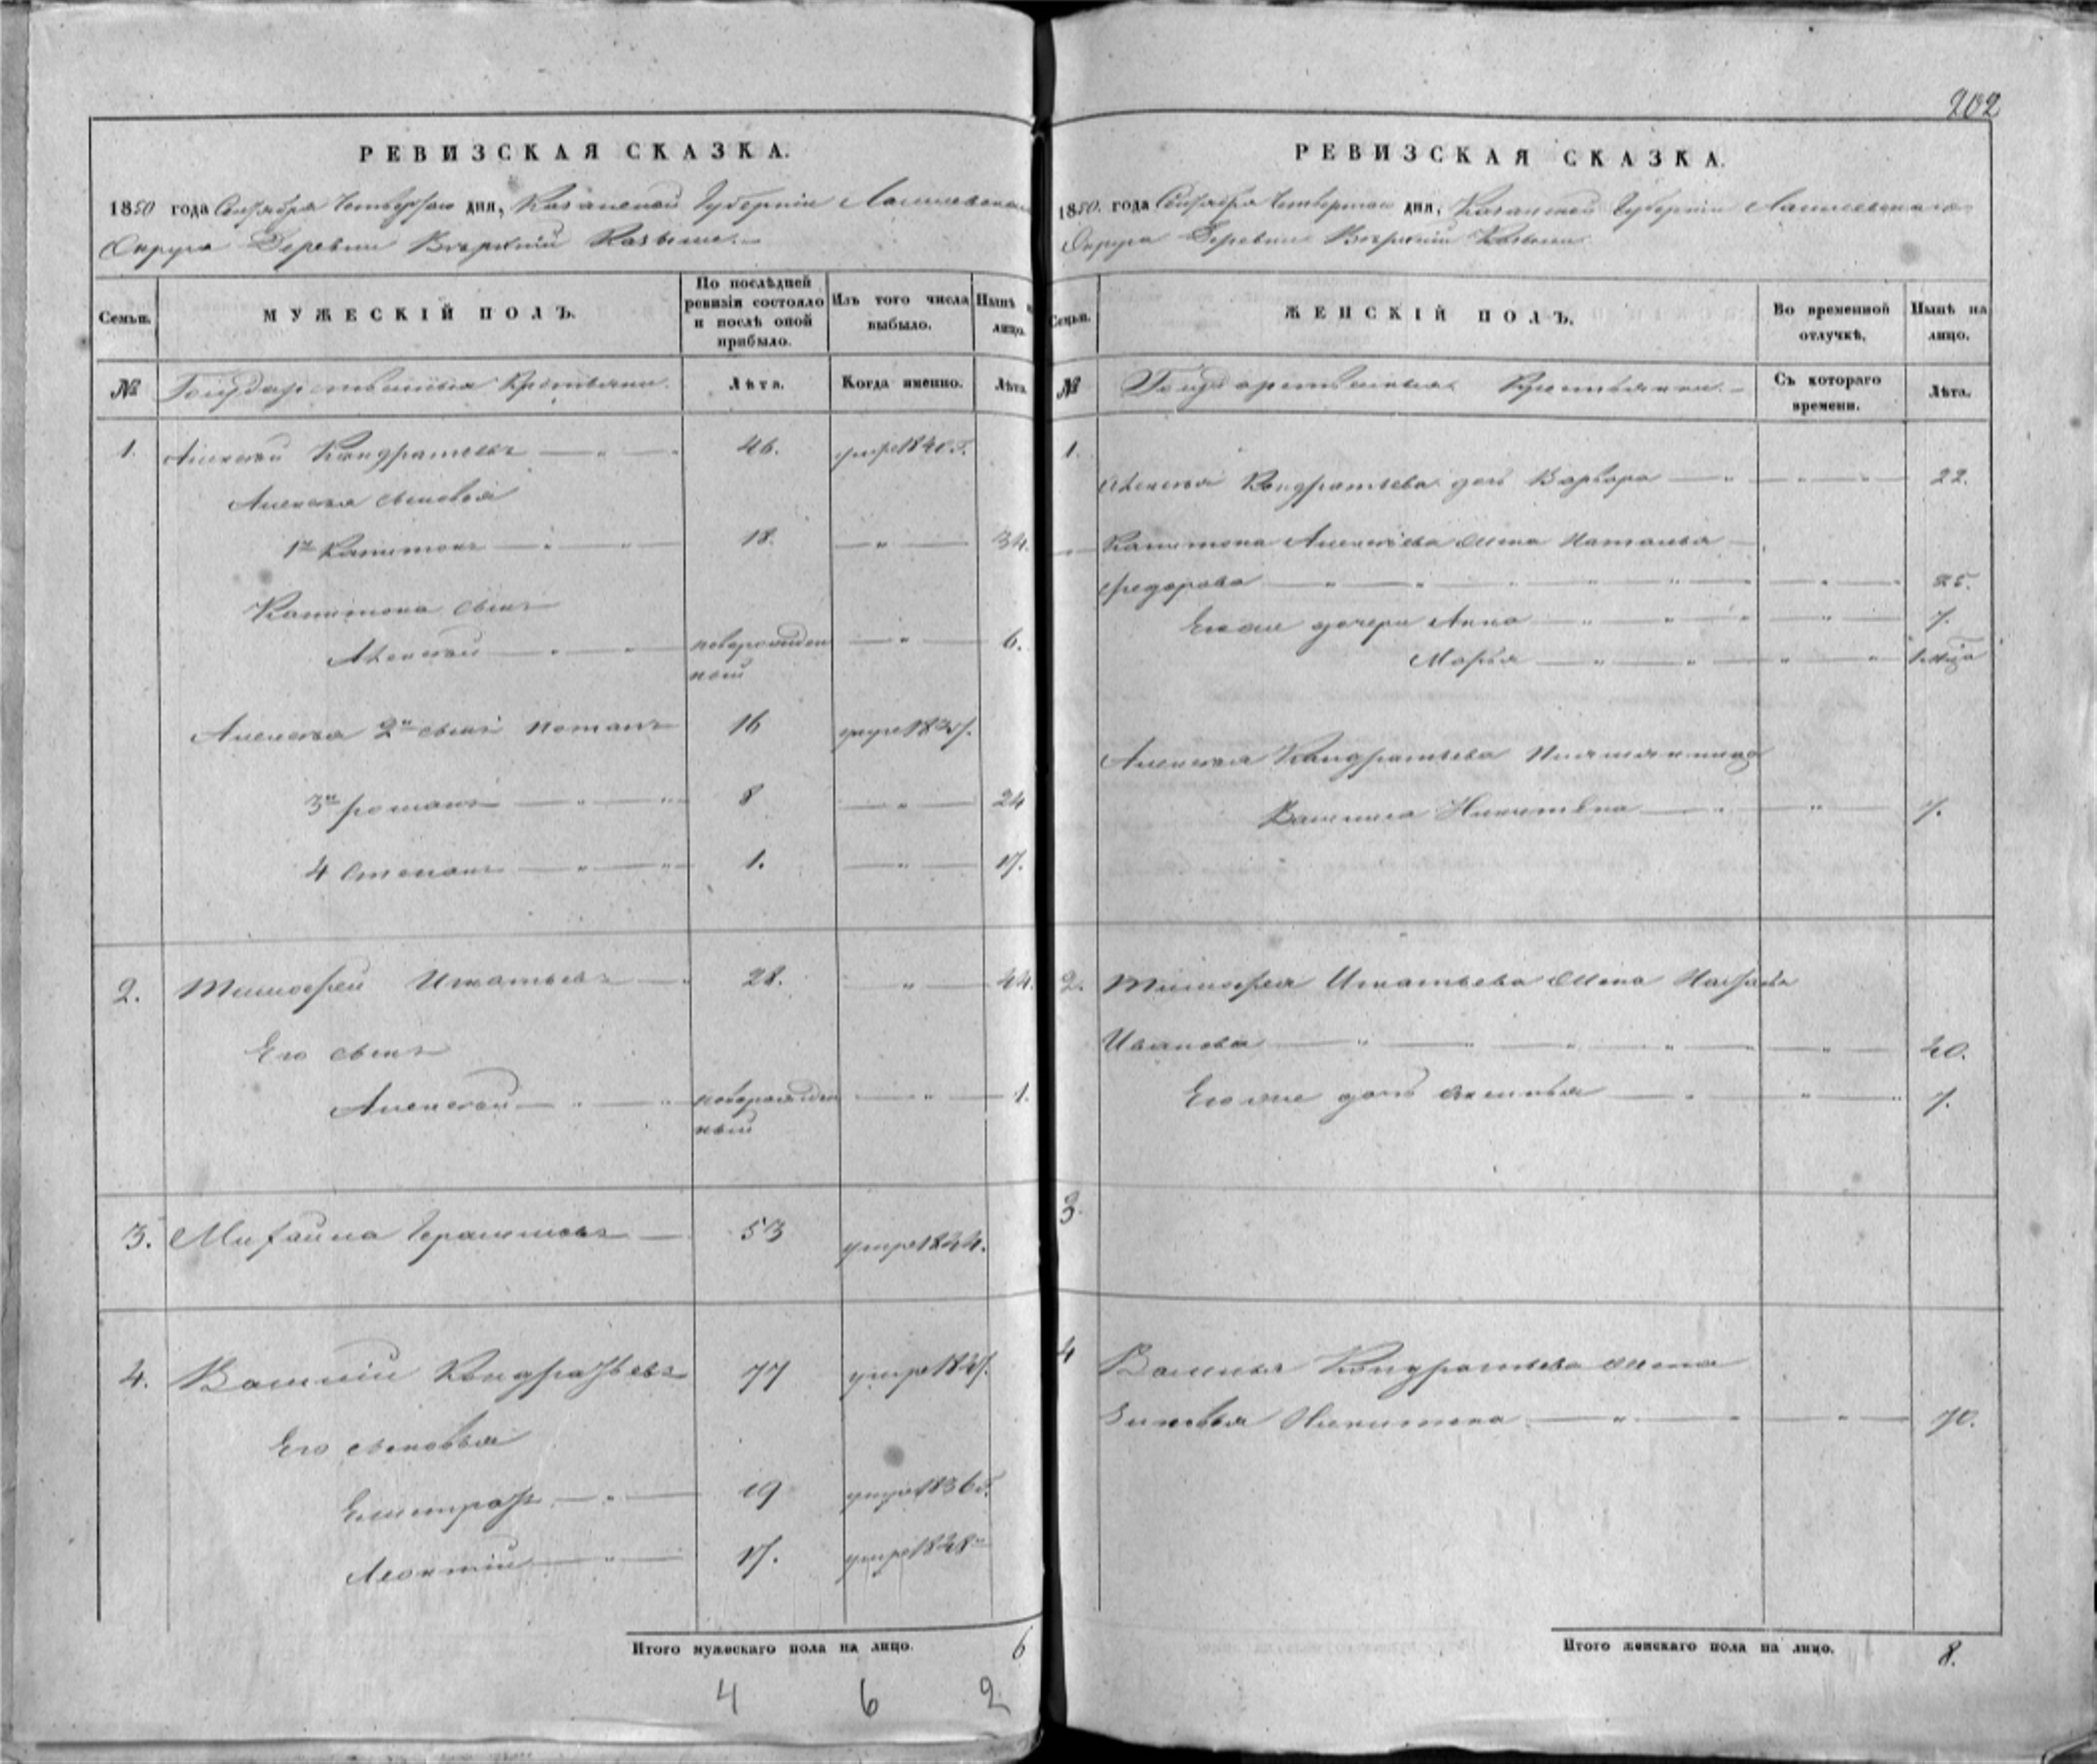 РЕВИЗСКАЯ СКАЗКА.
1850 года Сентября Четвертаго дня, Казанской Губерніи Лаишевскаго
Округа Деревни Верхній
Семьи.
МУЖЕСКІЙ ПОЛЪ.
По послѣдней ревизіи состояло и послѣ оной прибыло.
Изъ того числа выбыло.
Нынѣ на лицо.
№
Государственныя Крестьяне.
Лѣта.
Когда именно.
Лѣта.
1. Алексей Кондратьевъ 46. умре 1840 г.
Алексея сыновья
1й Капитонъ 18. 34.
Капитона сынъ
Алексей новорожден 6.
ный
Алексея 2й сынъ Потапъ 16
3й романъ 8 24
4 Степанъ 1. 17.
2. Тимофей Игнатьевъ 28. 44.
Его сынъ
Алексей новорожден 1.
ный
3. Михайла Герасимовъ 53 умре 1844.
4. Василій Кондратьевъ 77
Его сыновья
Елистратъ 19 умре 1836 г.
Леонтій 17.
Итого мужескаго пола на лицо. 6
4 6 2
202
РЕВИЗСКАЯ СКАЗКА.
1850. года Сентября Четвертаго дня, Казанской Губерніи Лаишевскаго
Округа Деревни Верхній
Семьи.
ЖЕНСКІЙ ПОЛЪ.
Во временной отлучкѣ,
Нынѣ на лицо.
№
Государственныя Крестьянки.
Съ котораго времени.
Лѣта.
1.
Алексея Кондратьева дочь Варвара 22.
Капитона Алексеева жена Наталья
федорова 25.
Его же дочери Анна 7.
Марья
Алексея Кондратьева
7.
2. Тимофея Игнатьева жена
Иванова 40.
Его же дочь 7.
3.
4 Василья Кондратьева жена
Зиновья Никитина 70.
Итого женскаго пола на лицо. 8.